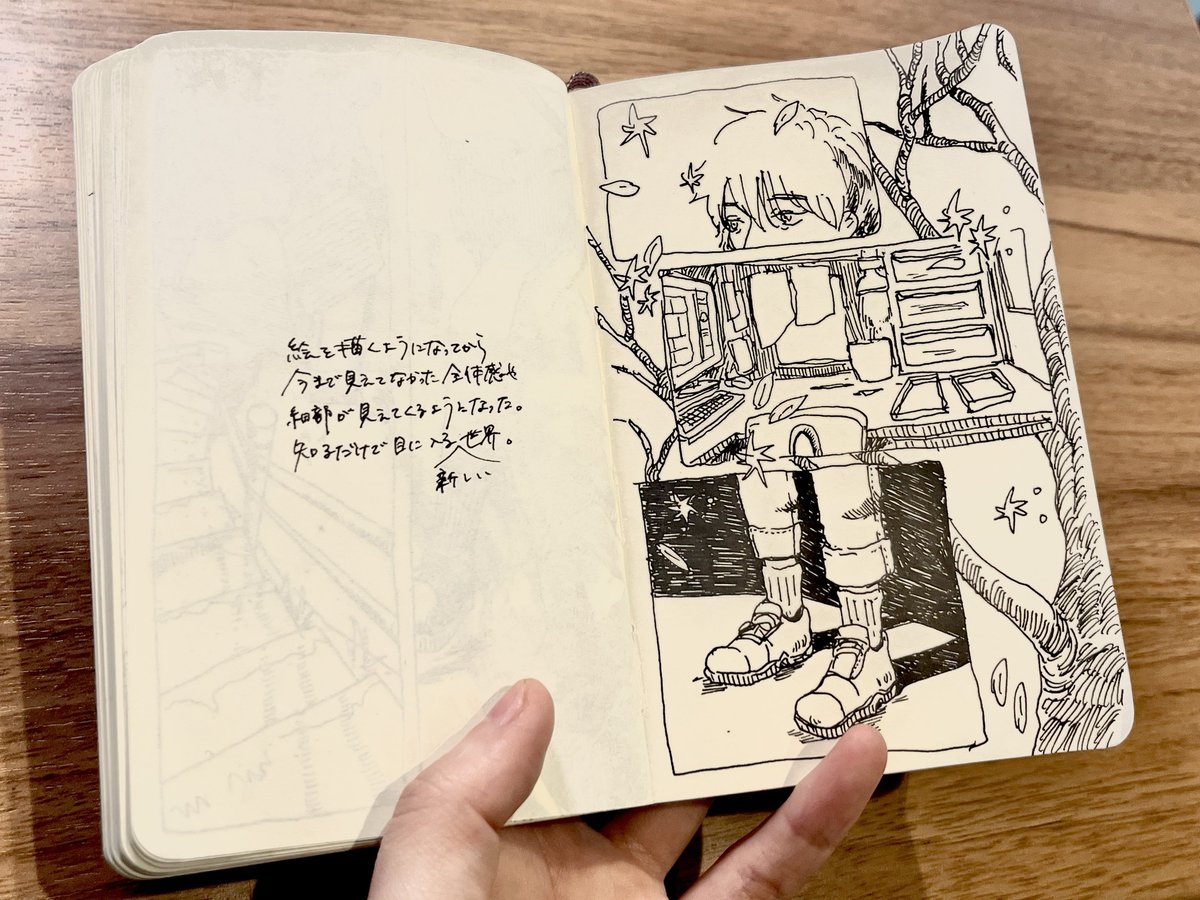 絵を描くようになってから
今まで見えてなかった全体感や
細部が見えてくるようになった。
知るだけで目に入る世界。
新しい